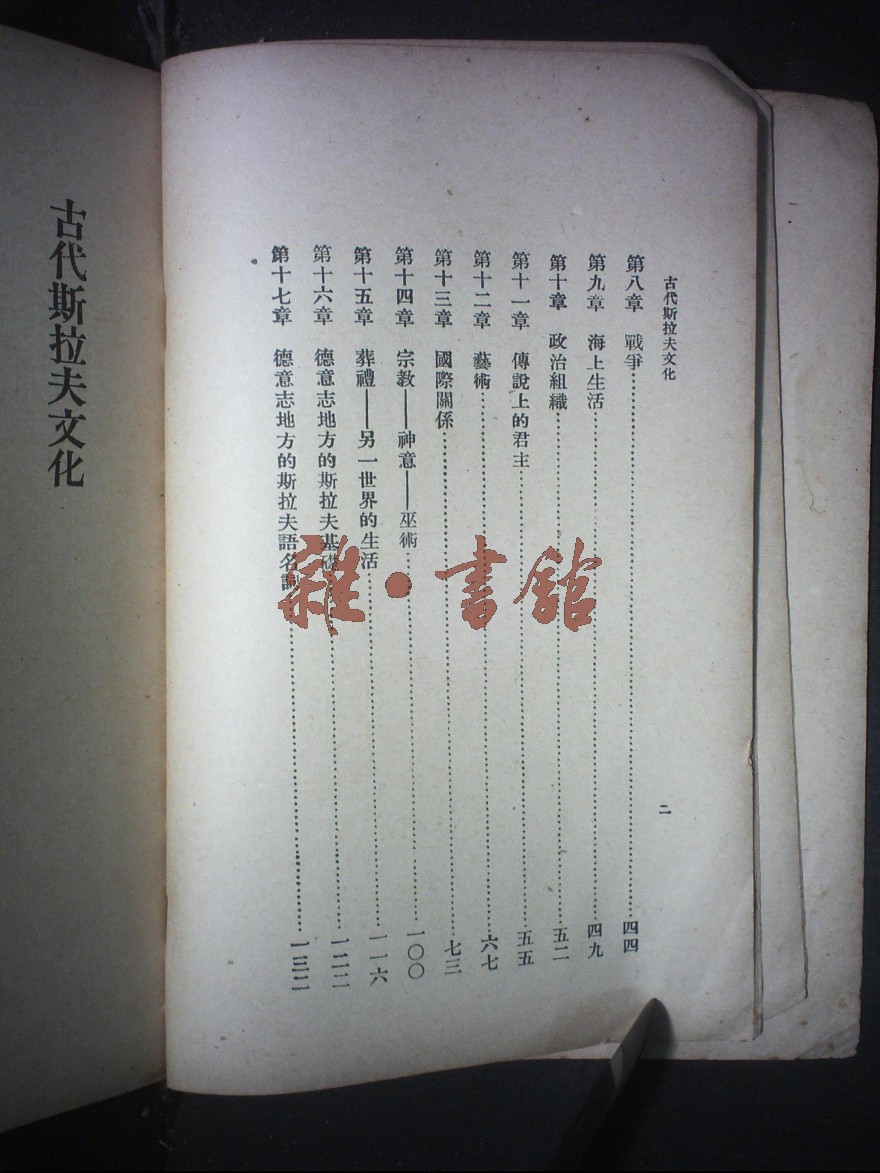 古代斯拉夫文化
二
第八章 戰爭……四四
第九章 海上生活……四九
第十章 政治組織……五二
第十一章 傳說上的君主……五五
第十二章 藝術……六七
第十三章 國際關係……七三
第十四章 宗教——神意——巫術……一〇〇
第十五章 葬禮——另一世界的生活……一一六
第十六章 德意志地方的斯拉夫基礎……一二二
第十七章 德意志地方的斯拉夫語名詞……一三二
古代斯拉夫文化
雜·書館